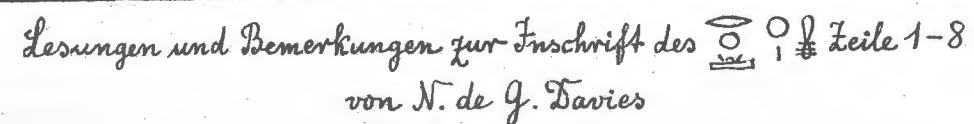 Lesungen und Bemerkungen zur Inschrift des 𓂋𓐍𓏛𓇳𓏤𓏇 Zeile 1-8
von N. de G. Davies